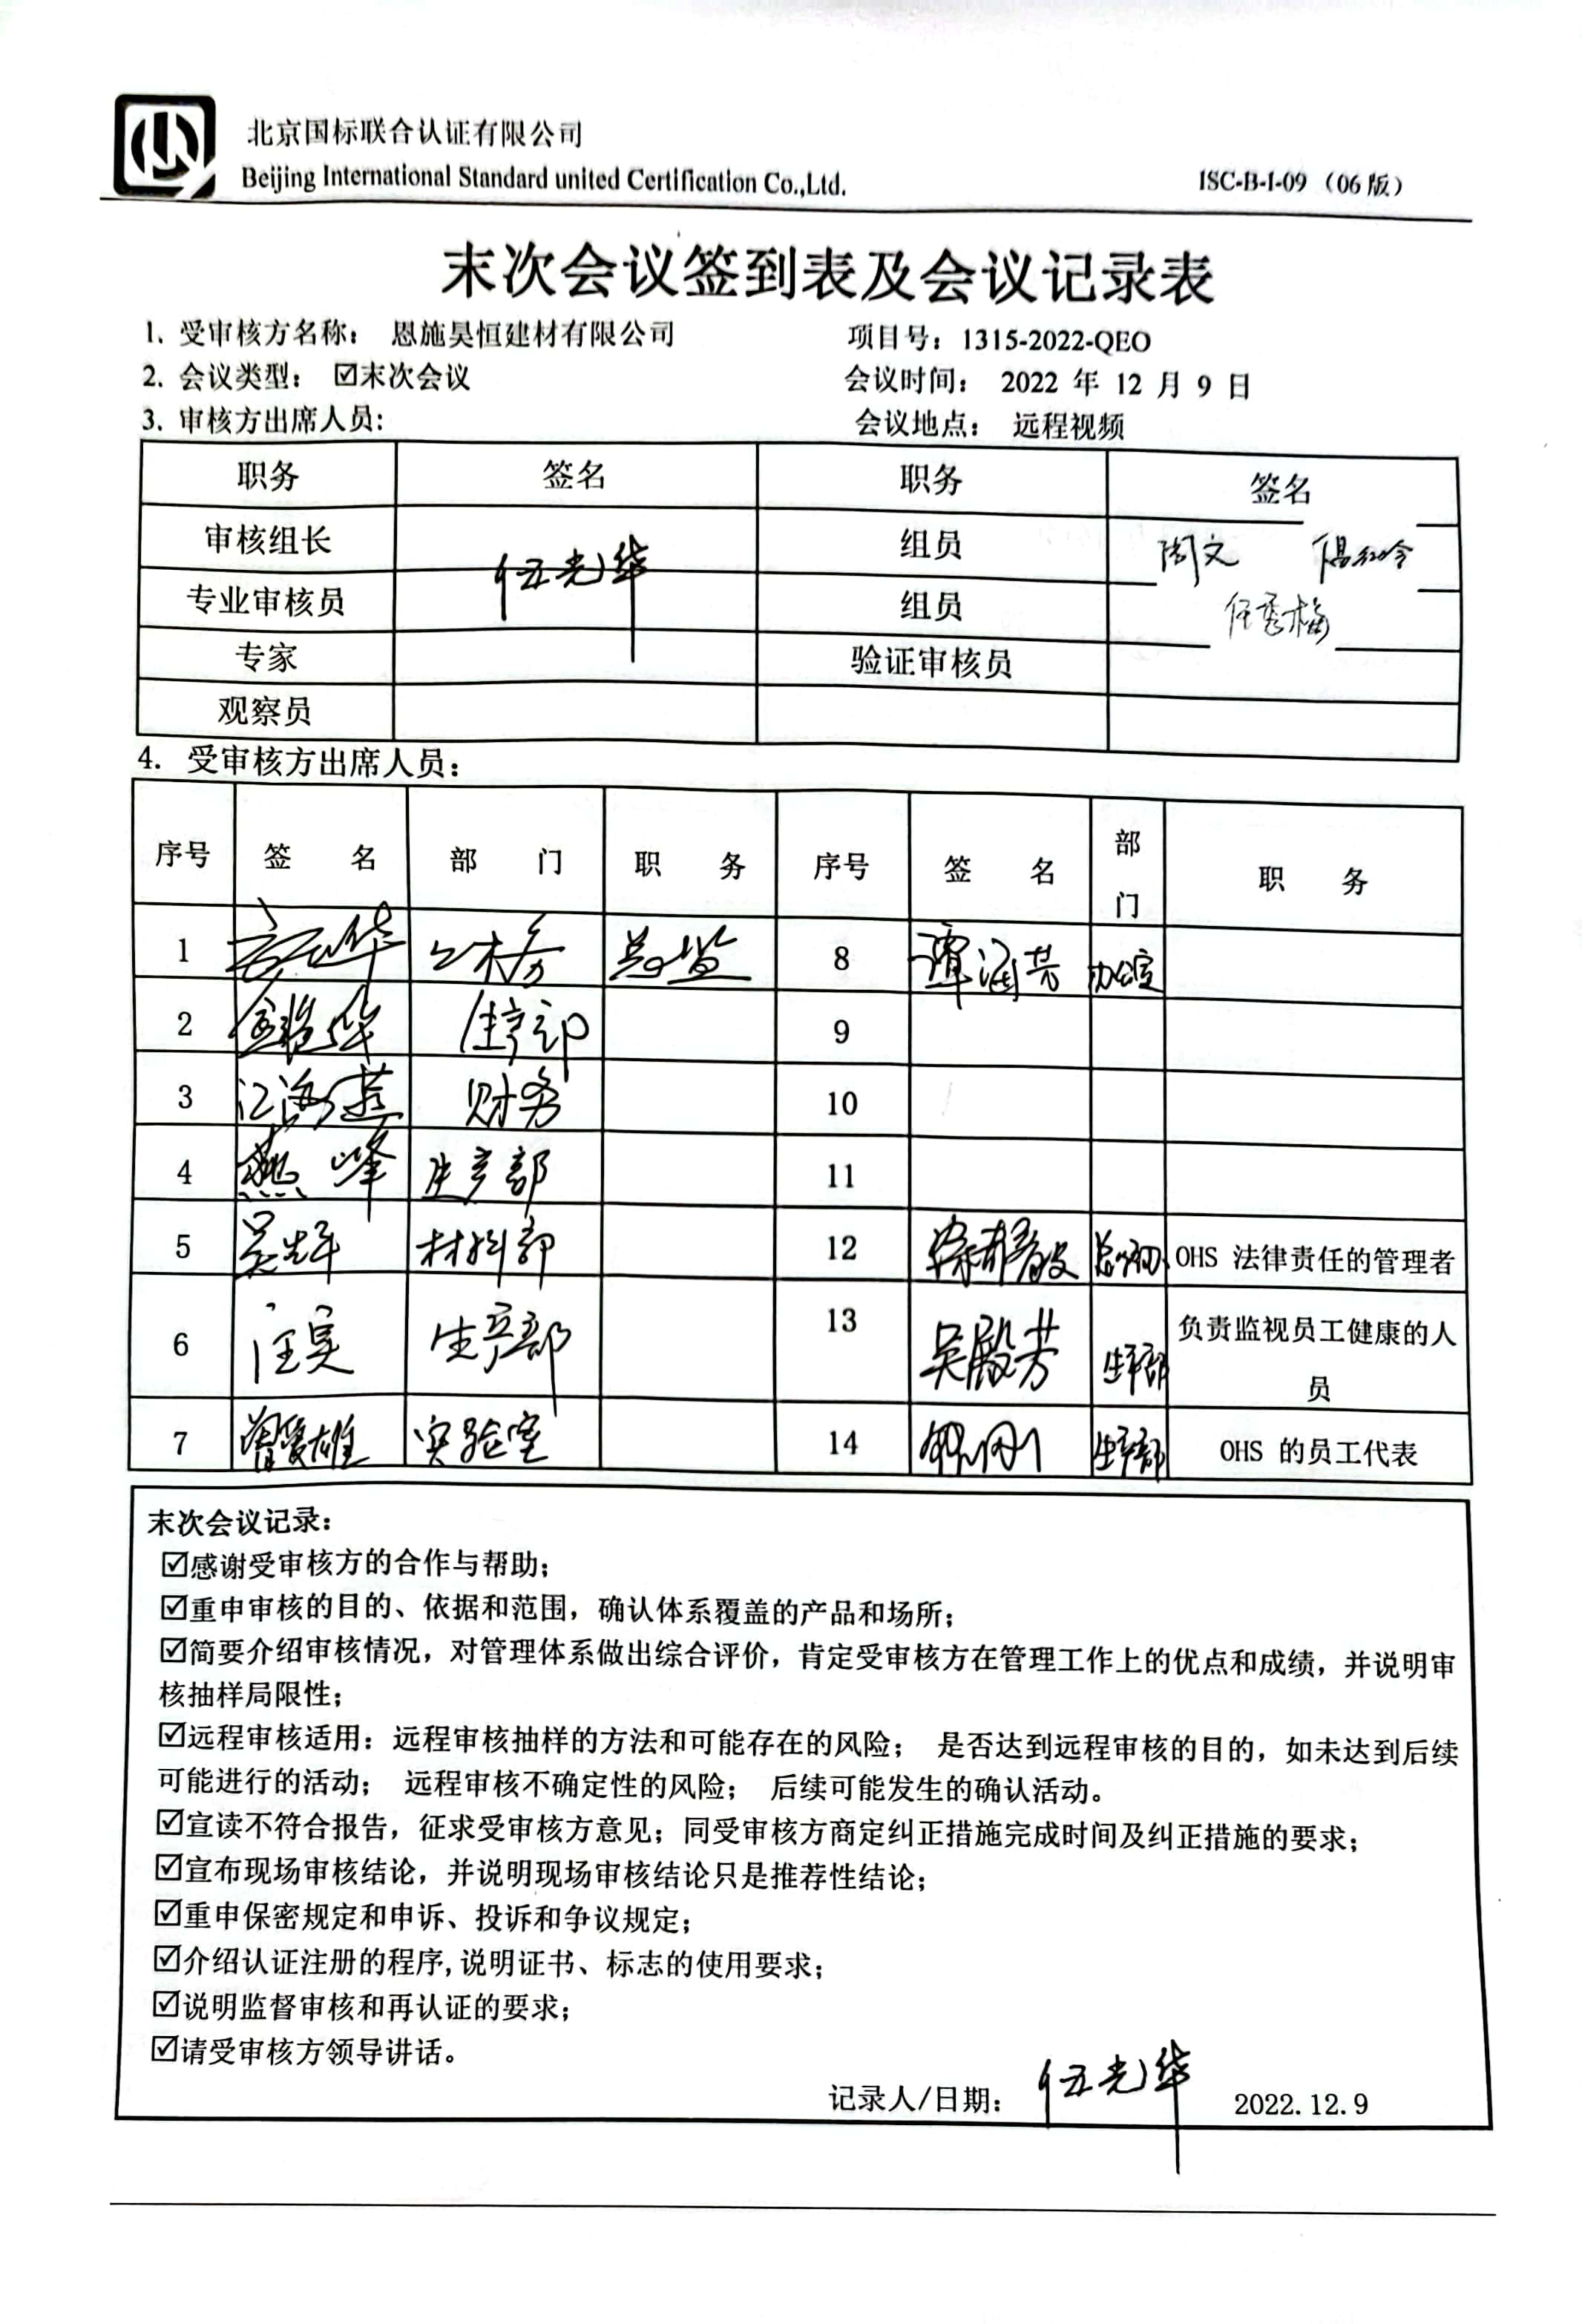 北京国标联合认证有限公司
Beijing International Standard united Certification Co.,Ltd.
ISC-B-I-09（06版）
末次会议签到表及会议记录表
1. 受审核方名称： 恩施昊恒建材有限公司 项目号：1315-2022-QEO
2. 会议类型： ☑末次会议 会议时间： 2022 年 12 月 9 日
3. 审核方出席人员： 会议地点： 远程视频
职务 签名 职务 签名
审核组长 伍光华 组员 陶文
专业审核员 组员 任秀梅
专家 验证审核员
观察员
4. 受审核方出席人员：
序号 签 名 部 门 职 务 序号 签 名 部 门 职 务
1 8 谭润芳 办公室
2 9
3 江海燕 财务 10
4 燕峰 生产部 11
5 材料部 12 OHS 法律责任的管理者
6 汪昊 生产部 13 吴殿芳 生产部 负责监视员工健康的人员
7 实验室 14 生产部 OHS 的员工代表
末次会议记录：
☑感谢受审核方的合作与帮助；
☑重申审核的目的、依据和范围，确认体系覆盖的产品和场所；
☑简要介绍审核情况，对管理体系做出综合评价，肯定受审核方在管理工作上的优点和成绩，并说明审
核抽样局限性；
☑远程审核适用：远程审核抽样的方法和可能存在的风险； 是否达到远程审核的目的，如未达到后续
可能进行的活动； 远程审核不确定性的风险； 后续可能发生的确认活动。
☑宣读不符合报告，征求受审核方意见；同受审核方商定纠正措施完成时间及纠正措施的要求；
☑宣布现场审核结论，并说明现场审核结论只是推荐性结论；
☑重申保密规定和申诉、投诉和争议规定；
☑介绍认证注册的程序,说明证书、标志的使用要求；
☑说明监督审核和再认证的要求；
☑请受审核方领导讲话。
记录人/日期： 伍光华 2022.12.9